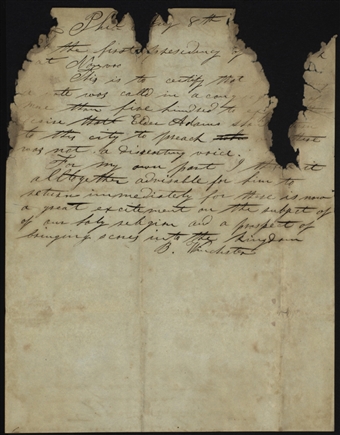 Phil 8th
the first presidency of
at Nauvoo
This is to certify that
a vote was call'd in a cong
more than five hundred to
Elder Adams
to this city to preach there
was not a dissenting voice.
For my own part I think it
altogether advisible for him to
return immediately for there is now
a great excitement on the subject of
of our holy religion and a prospect of
bringing scores into the Kingdom
B. Winchester